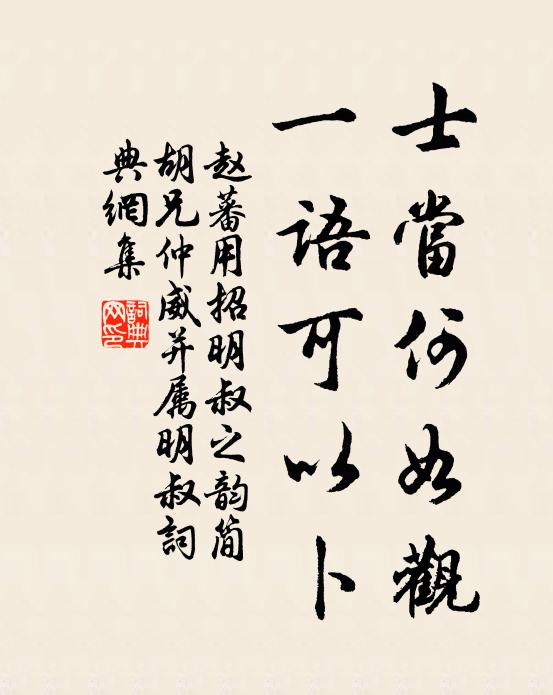 士當何如觀
一語可以卜
赵蕃用招明叔之韵简
胡兄仲威并属明叔詞
典網集
詞典
网印